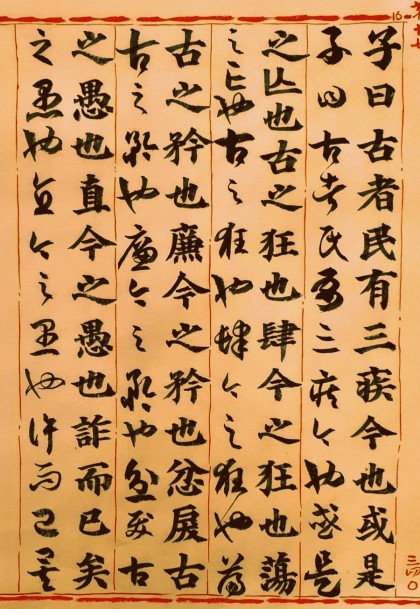 子曰古者民有三疾今也或是
子曰古者民有三疾今也或是
之亡也古之狂也肆今之狂也蕩
之亡也古之狂也肆今之狂也蕩
古之矜也廉今之矜也忿戾古
古之矜也廉今之矜也忿戾古
之愚也直今之愚也詐而已矣
之愚也直今之愚也詐而已矣
16
三四〇